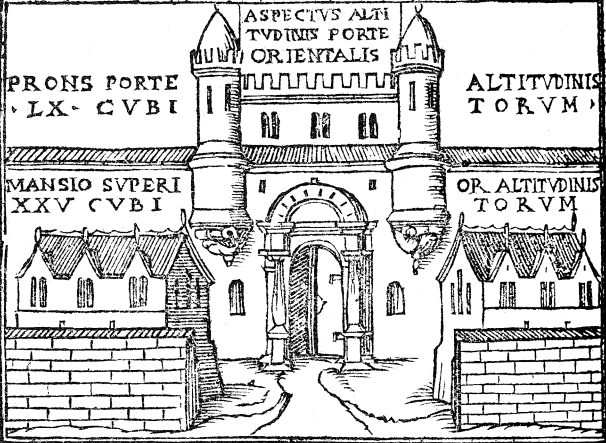 ASPECTVS ALTI
TVDINIS PORTE
ORIENTALIS
PRONS PORTE ALTITVDINIS
· LX · CVBI TORVM ·
MANSIO SVPERI OR ALTITVDINIS
XXV CVBI TORVM